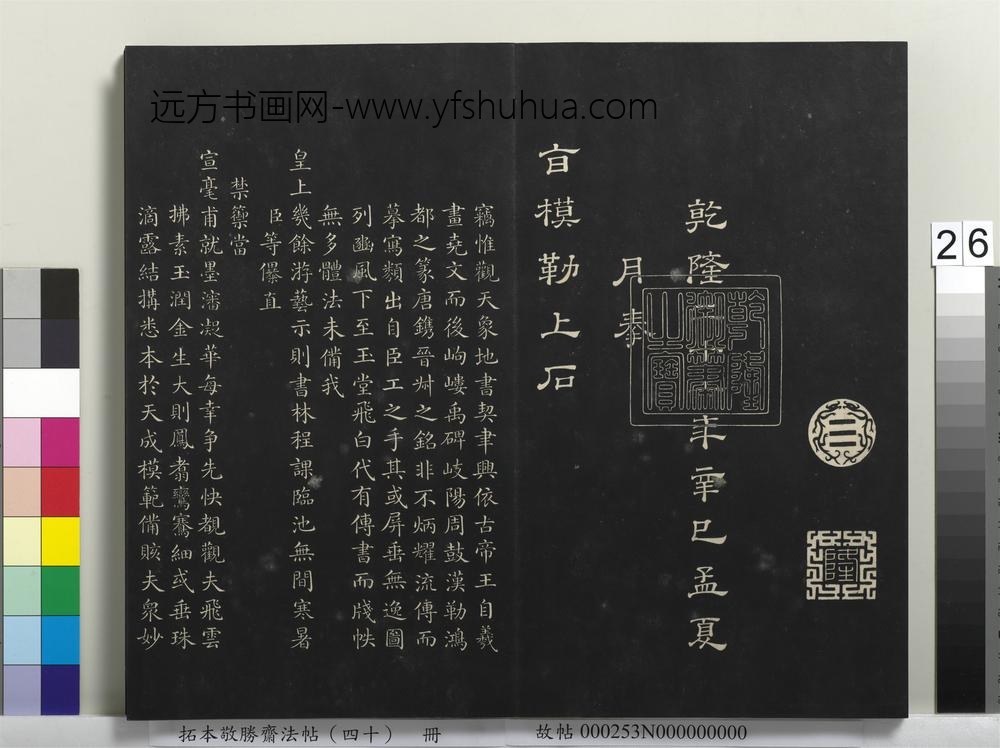 远方书画网-www.yfshuhua.com
26
乾隆
年辛巳孟夏
月奉
旨模勒上石
乾隆
御筆
之寶
三
隆
竊惟觀天象地書契聿興依古帝王自羲
畫堯文而後岣嶁禹碑岐陽周鼓漢勒鴻
都之篆唐鐫晉艸之銘非不炳耀流傳而
摹寫類出自臣工之手其或屏垂無逸圖
列豳風下至玉堂飛白代有傳書而牋帙
無多體法未備我
皇上幾餘游藝示則書林程課臨池無間寒暑
臣等儤直
禁籞當
宣毫甫就墨瀋凝華每幸爭先快覩觀夫飛雲
拂素玉潤金生大則鳳翥鸞騫細或垂珠
滴露結搆悉本於天成模範備賅夫眾妙
拓本敬勝齋法帖（四十） 冊
故帖 000253N000000000